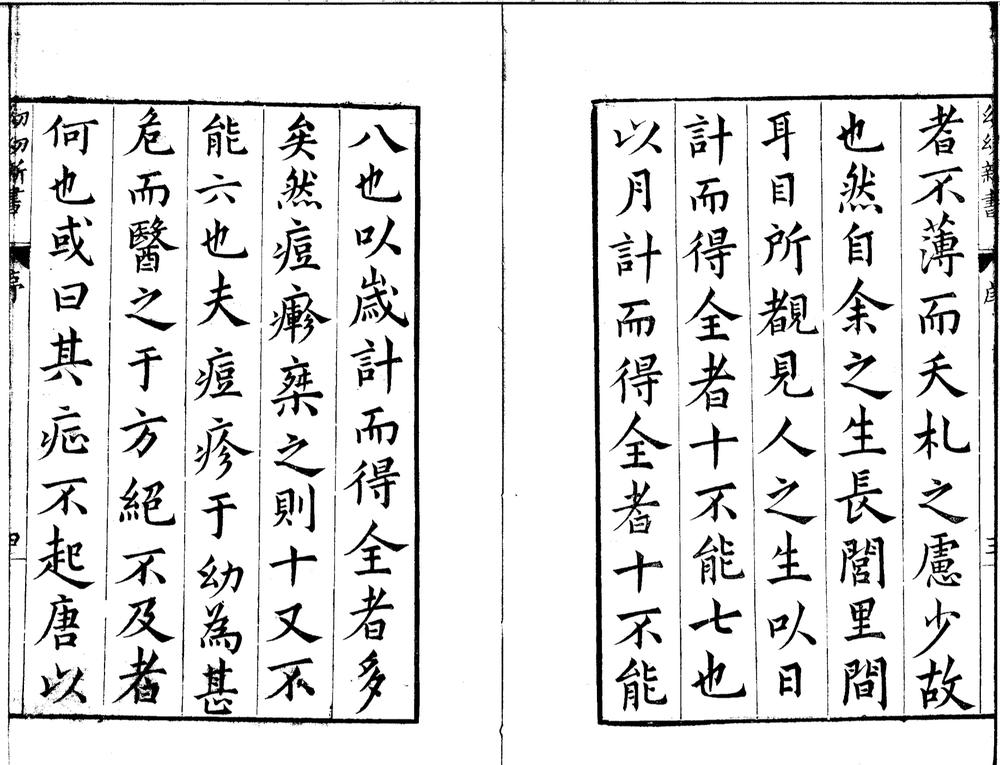 者不薄而夭札之慮少故
也然自余之生長閭里間
耳目所覩見人之生以日
計而得全者十不能七也
以月計而得全者十不能
八也以歲計而得全者多
矣然痘瘮槩之則十又不
能六也夫痘疹于幼為甚
危而醫之于方絕不及者
何也或曰其疾不起唐以
幼幼新書
序
四
幼幼新書
序
三